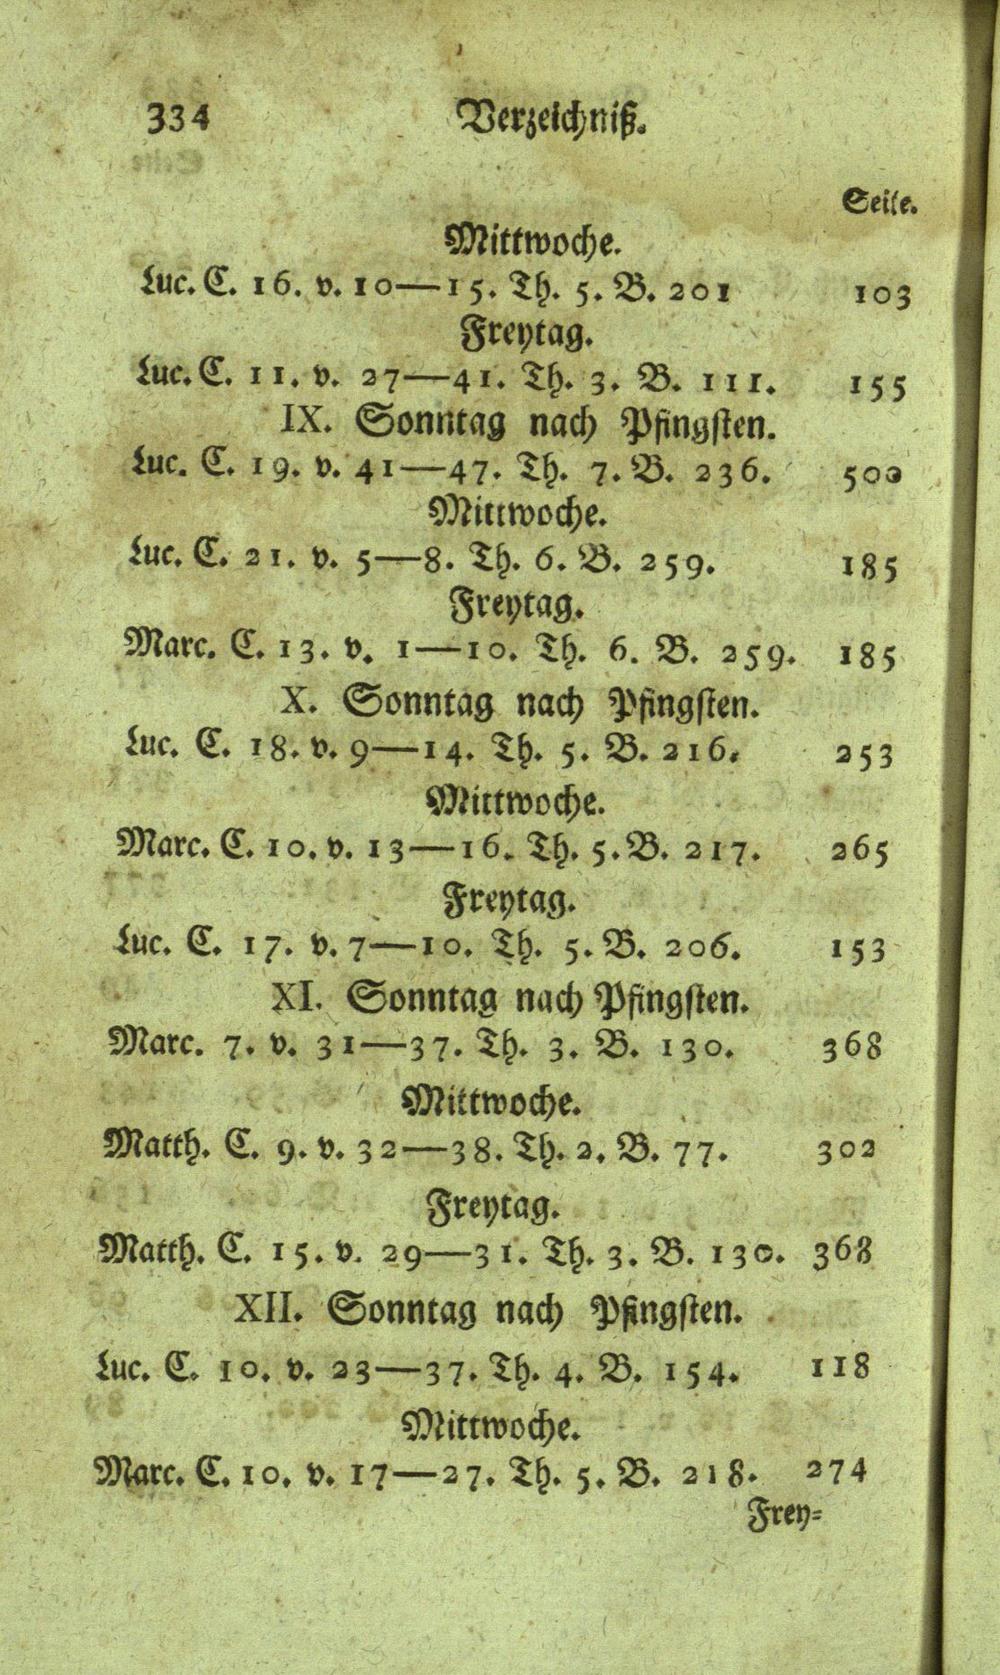 334 Verzeichniß.
Seite.
Mittwoche.
Luc. C. 16. v. 10—15. Th. 5. B. 201 103
Freytag.
Luc. C. 11. v. 27—41. Th. 3. B. 111. 155
IX. Sonntag nach Pfingsten.
Luc. C. 19. v. 41—47. Th. 7. B. 236. 500
Mittwoche.
Luc. C. 21. v. 5—8. Th. 6. B. 259. 185
Freytag.
Marc. C. 13. v. 1—10. Th. 6. B. 259. 185
X. Sonntag nach Pfingsten.
Luc. C. 18. v. 9—14. Th. 5. B. 216. 253
Mittwoche.
Marc. C. 10. v. 13—16. Th. 5. B. 217. 265
Freytag.
Luc. C. 17. v. 7—10. Th. 5. B. 206. 153
XI. Sonntag nach Pfingsten.
Marc. 7. v. 31—37. Th. 3. B. 130. 368
Mittwoche.
Matth. C. 9. v. 32—38. Th. 2. B. 77. 302
Freytag.
Matth. C. 15. v. 29—31. Th. 3. B. 130. 368
XII. Sonntag nach Pfingsten.
Luc. C. 10. v. 23—37. Th. 4. B. 154. 118
Mittwoche.
Marc. C. 10. v. 17—27. Th. 5. B. 218. 274
Frey=